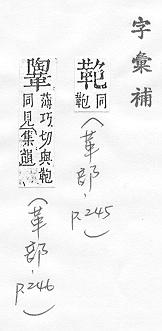 字彙補
同鞄（革部，p.245）
薄巧切與鞄
同見集韻（革部，p.246）